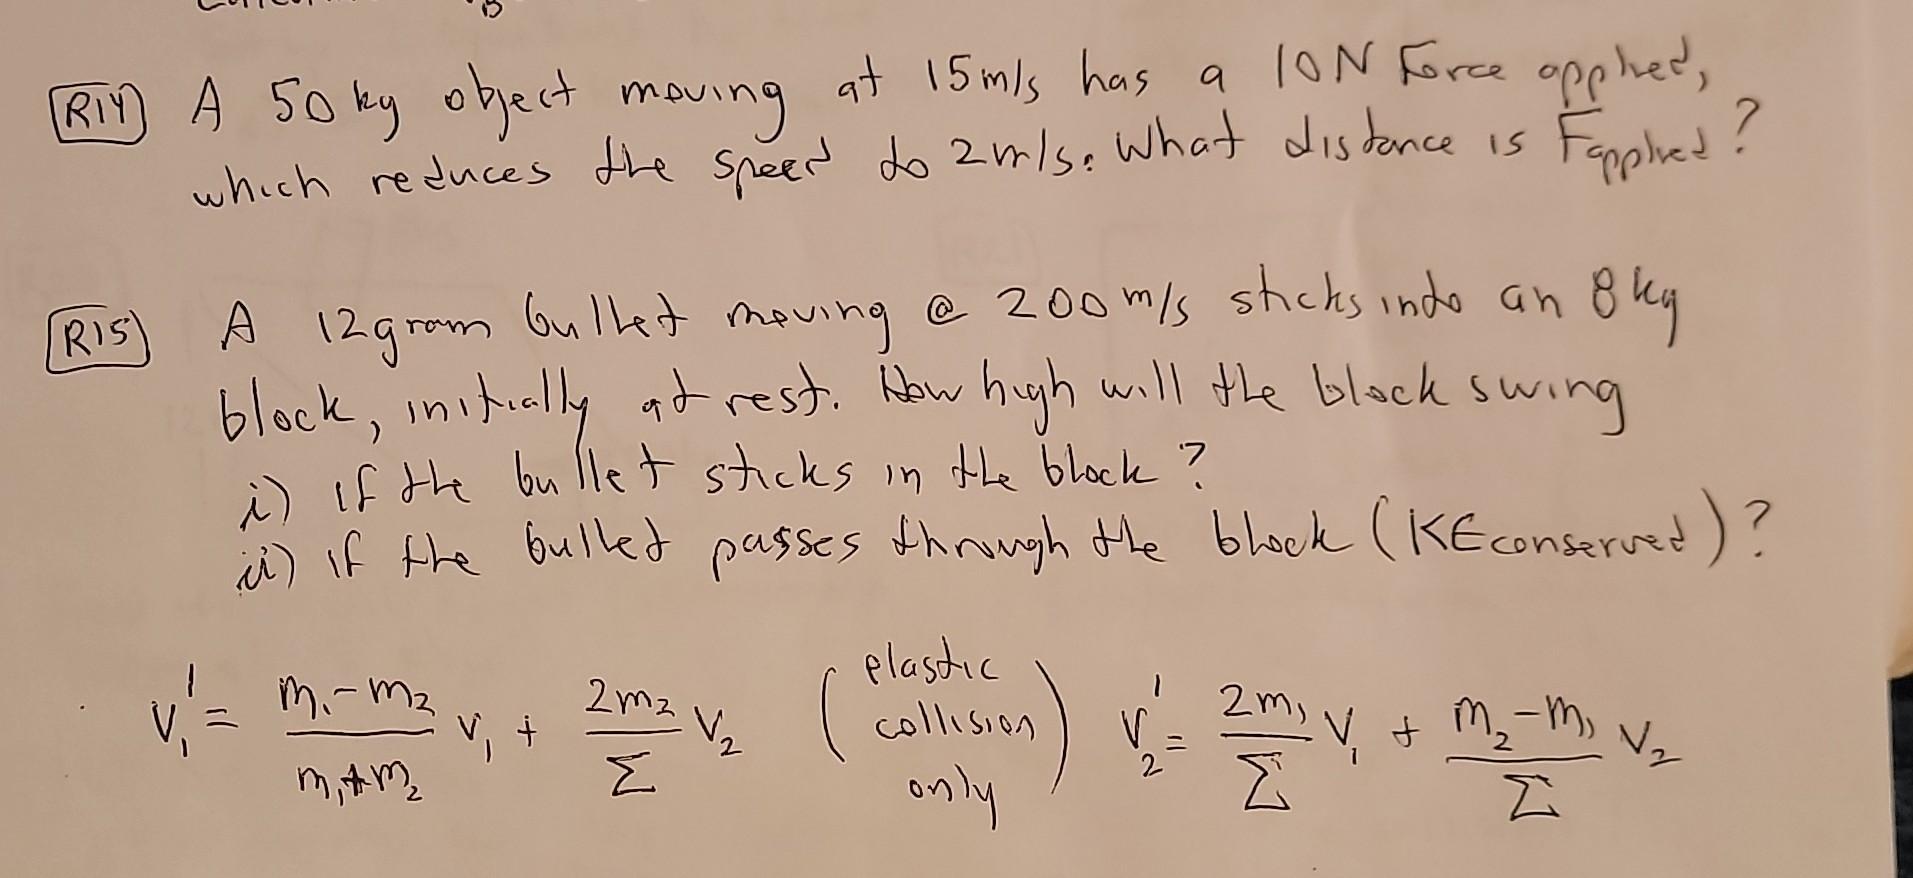 R14) A 50 kg object moving at 15 m/s has a 10N Force applied,
which reduces the speed to 2 m/s. What distance is Fapplied?
R15) A 12 gram bullet moving @ 200 m/s sticks into an 8 kg
block, initially at rest. How high will the block swing
i) if the bullet sticks in the block?
ii) if the bullet passes through the block (KE conserved)?
V₁' = (m₁-m₂)/(m₁+m₂) V₁ + 2m₂/Σ V₂ (elastic collision only) V₂' = 2m₁/Σ V₁ + (m₂-m₁)/Σ V₂